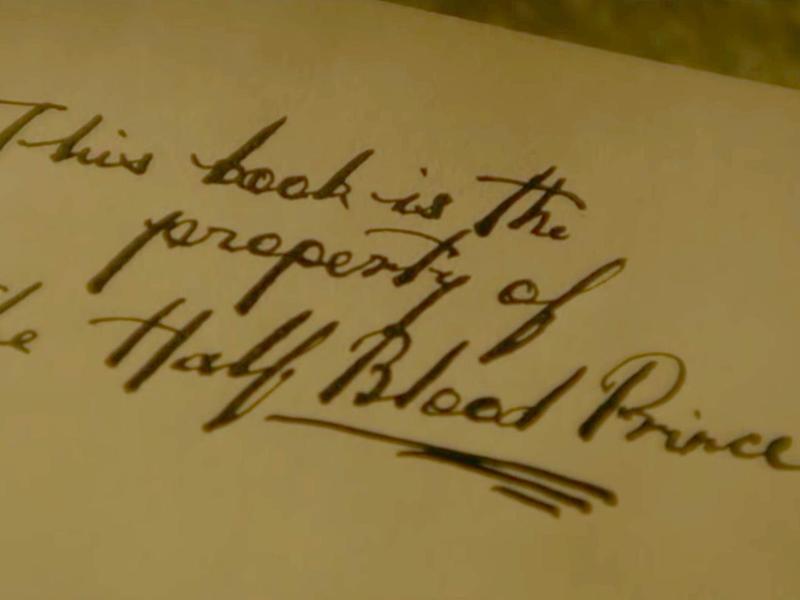 This book is the
property of
the Half Blood Prince